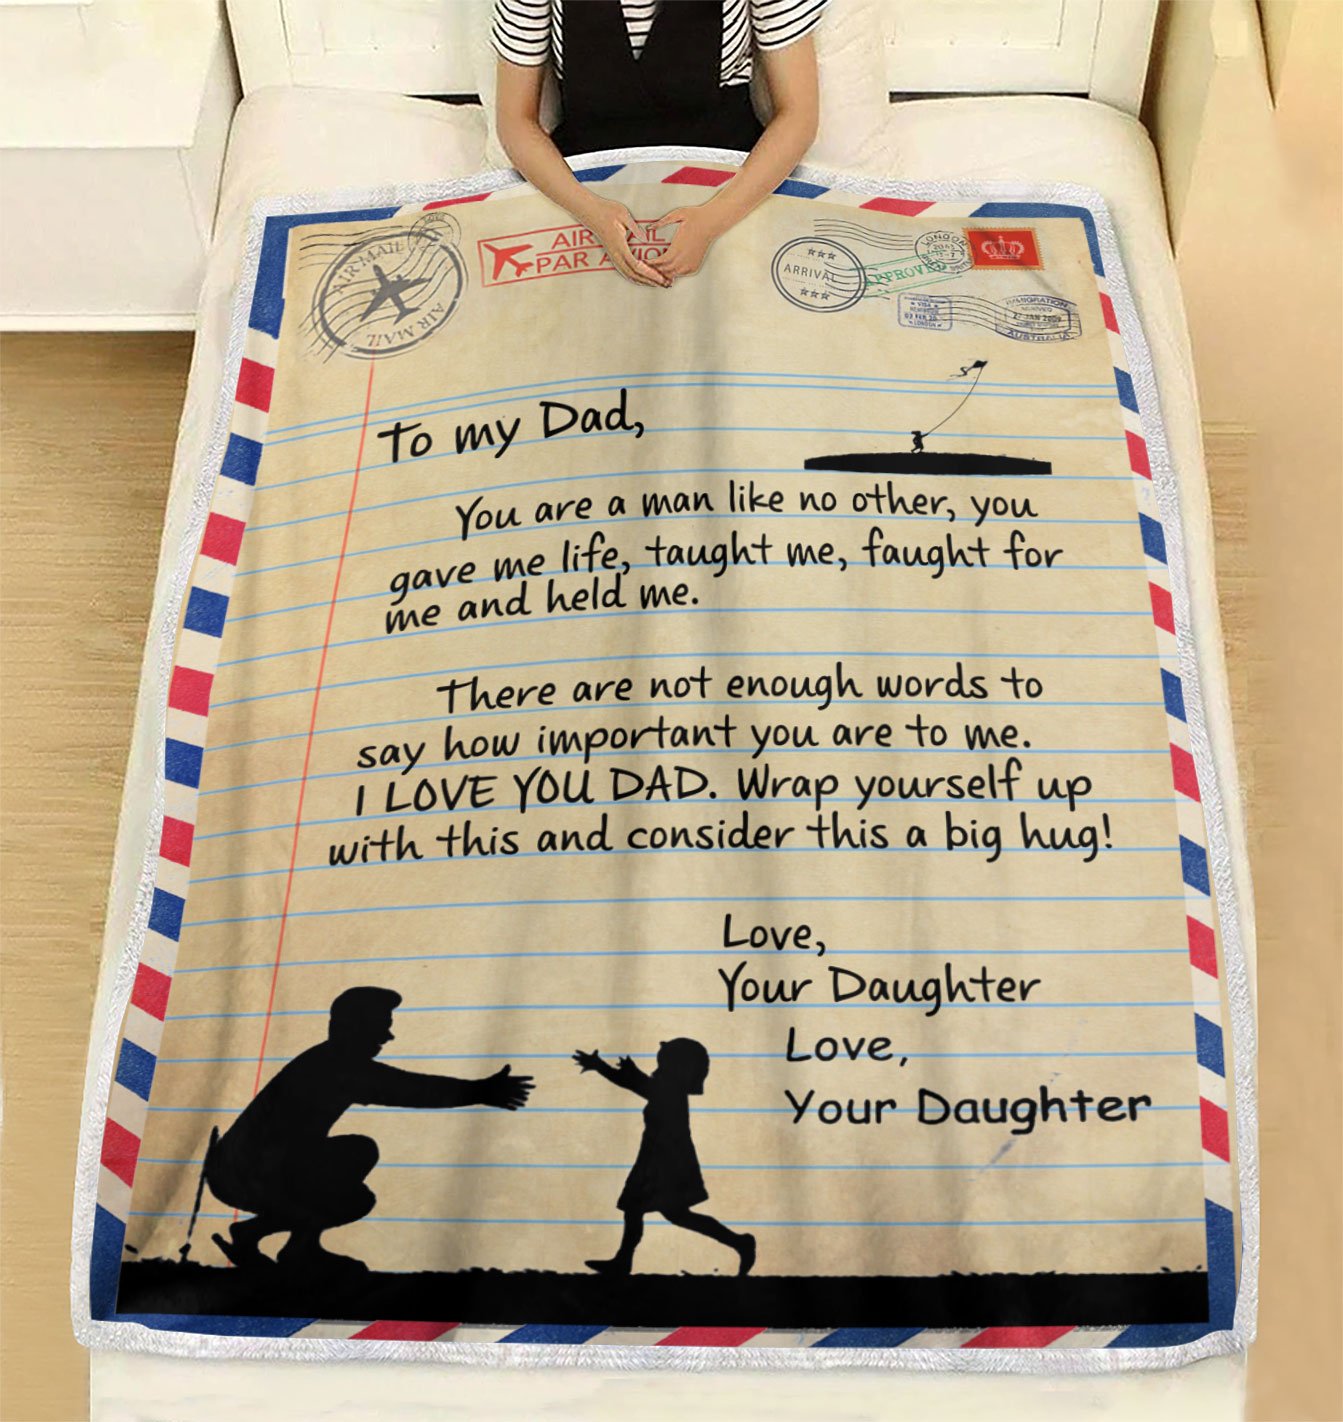 AIR-MAIL
AIR MAIL
LOVE
PAR
ARRIVAL
APPROVED
LONDON
VISA
02 FEB 20
LONDON
IMMIGRATION
27 JAN 2009
AUSTRALIA
To my Dad,
You are a man like no other, you
gave me life, taught me, faught for
me and held me.
There are not enough words to
say how important you are to me.
I LOVE YOU DAD. Wrap yourself up
with this and consider this a big hug!
Love,
Your Daughter
Love,
Your Daughter